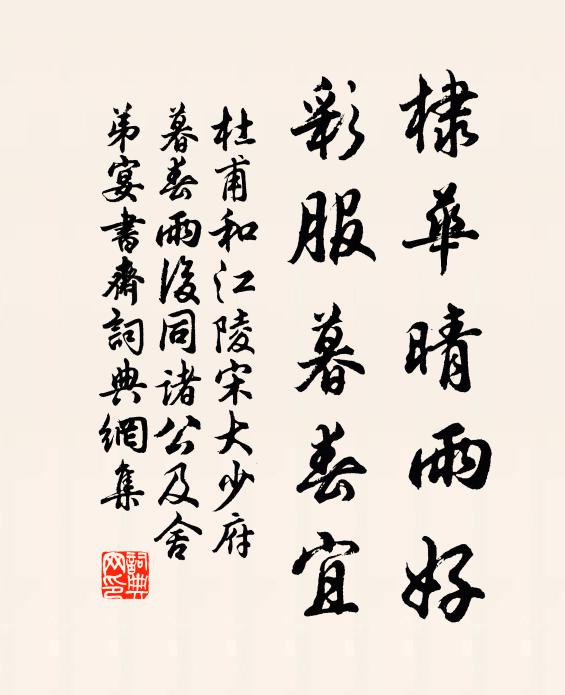 棣華晴雨好
彩服暮春宜
杜甫和江陵宋大少府
暮春雨後同諸公及舍
弟宴書齋詞典網集
詞典網印